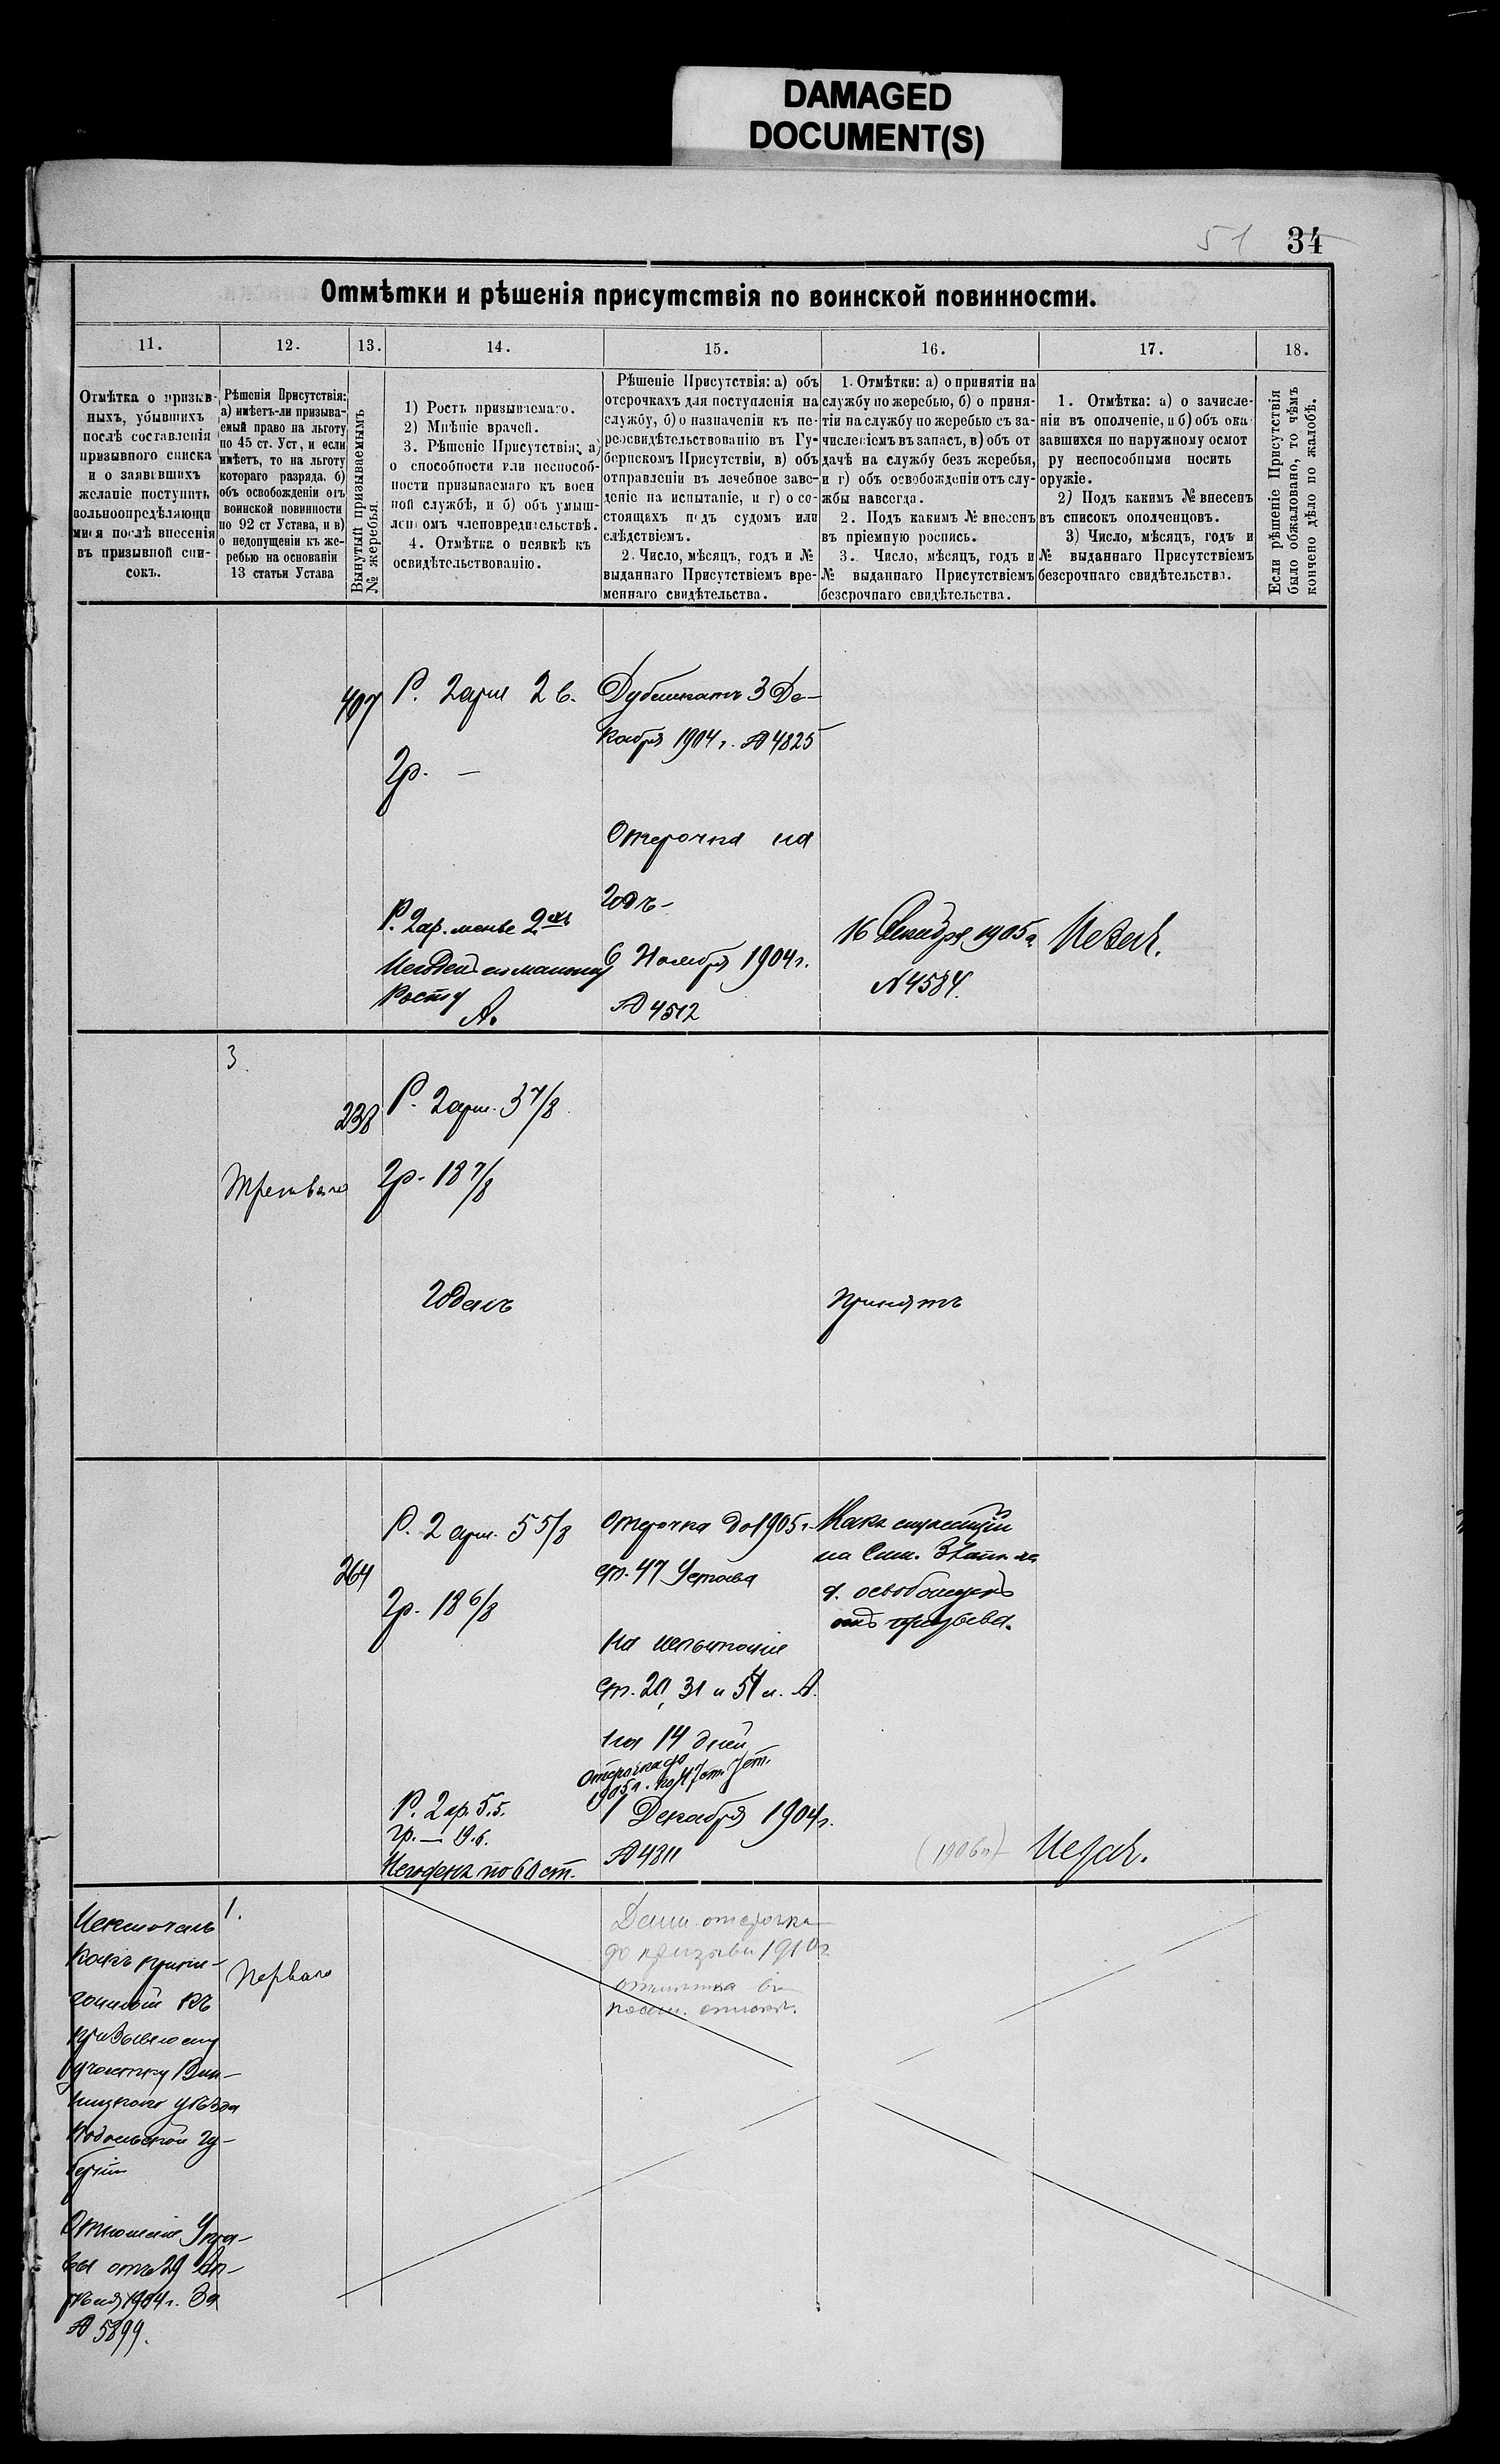 DAMAGED
DOCUMENT(S)
51 34
Отмѣтки и рѣшенія присутствія по воинской повинности.
11. 12. 13. 14. 15. 16. 17. 18.
Отмѣтка о призыв-
ныхъ, убывшихъ
послѣ составленія
призывного списка
и о заявившихъ
желаніе поступить
вольноопредѣляющи
мися послѣ внесенія
въ призывной спи-
сокъ.
Рѣшенія Присутствія:
а) имѣетъ-ли призыва-
емый право на льготу
по 45 ст. Уст, и если
имѣетъ, то на льготу
котораго разряда. б)
объ освобожденіи отъ
воинской повинности
по 92 ст Устава, и в)
о недопущеніи къ же-
ребью на основаніи
13 статьи Устава
Вынутый призываемымъ
№ жеребья.
1) Ростъ призываемаго.
2) Мнѣніе врачей.
3. Рѣшеніе Присутствія: а)
о способности или неспособ-
ности призываемаго къ воен
ной службѣ, и б) объ умыш-
леномъ членовредительствѣ.
4. Отмѣтка о неявкѣ къ
освидѣтельствованію.
Рѣшеніе Присутствія: а) объ
отсрочкахъ для поступленія на
службу, б) о назначеніи къ пе-
реосвидѣтельствованію въ Гу-
бернскомъ Присутствіи, в) объ
отправленіи въ лечебное заве-
деніе на испытаніе, и г) о со-
стоящихъ подъ судомъ или
слѣдствіемъ.
2. Число, мѣсяцъ, годъ и №
выданнаго Присутствіемъ вре-
меннаго свидѣтельства.
1. Отмѣтки: а) о принятіи на
службу по жеребью, б) о приня-
тіи на службу по жеребью съ за-
численіемъ въ запасъ, в) объ от
дачѣ на службу безъ жеребья,
и г) объ освобожденіи отъ слу-
жбы навсегда.
2. Подъ какимъ № внесенъ
въ пріемную роспись.
3. Число, мѣсяцъ, годъ и
№ выданнаго Присутствіемъ
безсрочнаго свидѣтельства.
1. Отмѣтка: а) о зачисле-
ніи въ ополченіе, и б) объ ока
завшихся по наружному осмот
ру неспособными носить
оружіе.
2) Подъ какимъ № внесенъ
въ списокъ ополченцовъ.
3) Число, мѣсяцъ, годъ и
№ выданнаго Присутствіемъ
безсрочнаго свидѣтельства.
Если рѣшеніе Присутствія
было обжаловано, то чѣмъ
кончено дѣло по жалобѣ.
407
Р. 2 арш 2 в.
Гр. —
Р. 2 ар. менѣе 2хъ
Негоденъ по малому
росту
А.
Дубликатъ 3 Де-
кабря 1904 г. № 4825
Отсрочка на
годъ-
6 Ноября 1904 г.
№ 4512
16 Декабря 1905 г.
№ 4584.
3
238
Третьяго
Р. 2 арш. 3 7/8
Гр. 18 7/8
Годенъ
Принятъ
264
Р. 2 арш. 5 5/8
Гр. 18 6/8
Р. 2 ар. 5.5.
гр. — 19.6.
Негоденъ по 60 ст.
Отсрочка до 1905 г.
ст. 47 Устава
На испытаніе
ст. 20, 31 и 54 л. А.
на 14 дней
Отсрочка до
1905 г. по 47 ст. Уст.
1 Декабря 1904 г.
№ 4811
Какъ
на
освобожденъ
отъ призыва.
(1906 г)
Исключенъ
какъ
къ
призывному
участку Вин-
ницкаго уѣзда
Подольской гу-
берніи
Отношеніе Упра-
вы отъ 29 Ап-
рѣля 1904 г. За
№ 5899.
1.
Перваго
Дана отсрочка
до призыва 1910 г.